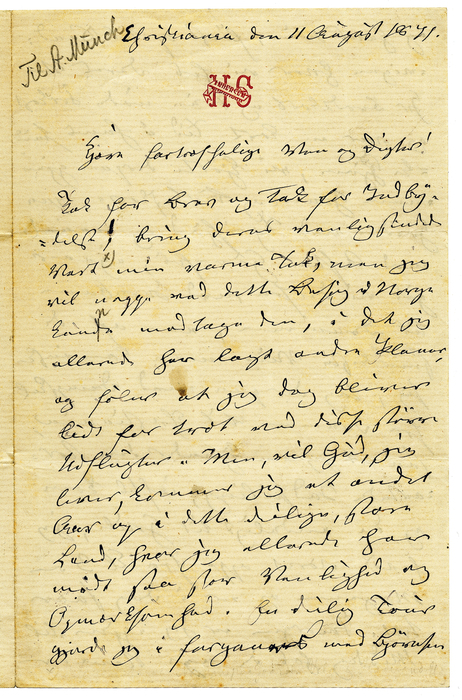 Til A. Munch
Christiania den 11 August 1871.
HS
Kjære fortræffelige Ven og Digter!
Tak for Brev og Tak for Indby-
delse, bring deres venligsindede
Vert x) min varme Tak, men jeg
vil neppe ved dette Besøg i Norge
kunne modtage den, i det jeg
allerede har lagt andre Planer,
og føler at jeg dog bliver
lidt for træt ved disse større
Udflugter. Men, vil Gud, jeg
lever, kommer jeg et andet
Aar op i dette deilige, store
Land, hvor jeg allerede har
mødt saa stor Venlighed og
Opmærksomhed. En deilig Tour
gjorde jeg i forgaars med Bjørnson